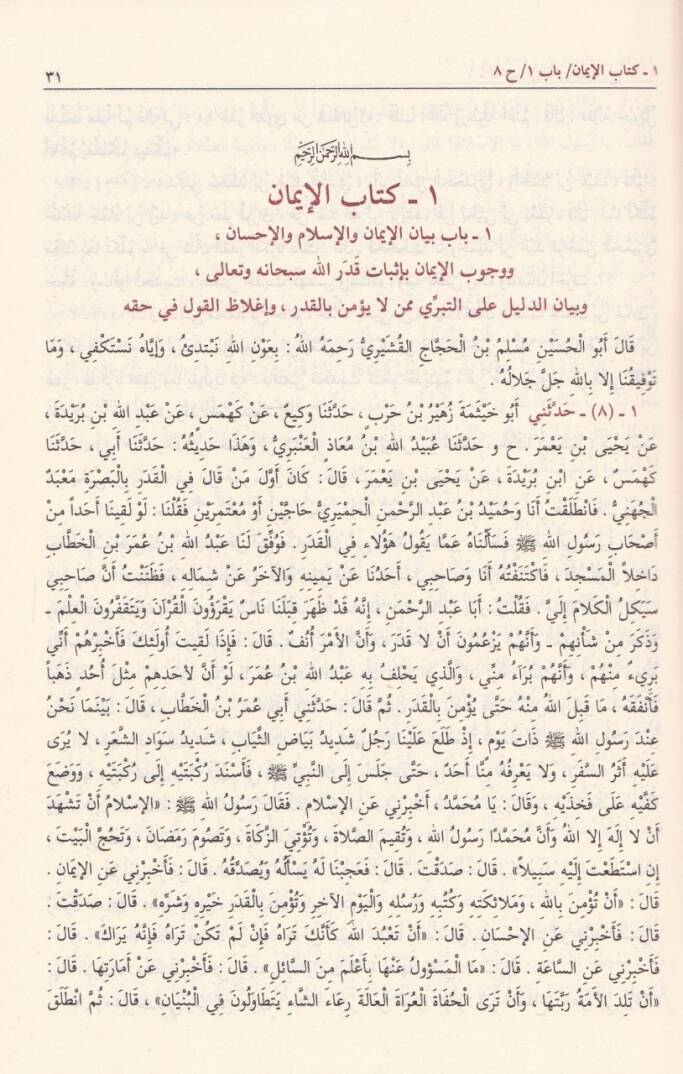 ١ ـ كتاب الإيمان/ باب ١/ ح ٨
٣١
بِسْمِ اللهِ الرَّحْمَنِ الرَّحِيمِ
١ ـ كتاب الإيمان
١ ـ باب بيان الإيمان والإسلام والإحسان ،
ووجوب الإيمان بإثبات قَدَر الله سبحانه وتعالى ،
وبيان الدليل على التبرِّي ممن لا يؤمن بالقدر ، وإغلاظ القول في حقه
قَالَ أَبُو الْحُسَيْنِ مُسْلِمُ بْنُ الْحَجَّاجِ القُشَيْرِيُّ رَحِمَهُ اللهُ : بِعَوْنِ اللهِ نَبْتَدِئُ ، وَإِيَّاهُ نَسْتَكْفِي ، وَمَا
تَوْفِيقُنَا إِلا بِالله جَلَّ جَلالُهُ .
١ ـ (٨) ـ حَدَّثَنِي أَبُو خَيْثَمَةَ زُهَيْرُ بْنُ حَرْبٍ ، حَدَّثَنَا وَكِيعٌ ، عَنْ كَهْمَسٍ ، عَنْ عَبْدِ الله بْنِ بُرَيْدَةَ ،
عَنْ يَحْيَى بْنِ يَعْمَرَ . ح و حَدَّثَنَا عُبَيْدُ الله بْنُ مُعَاذٍ الْعَنْبَرِيُّ ، وَهَذَا حَدِيثُهُ : حَدَّثَنَا أَبِي ، حَدَّثَنَا
كَهْمَسٌ ، عَنِ ابْنِ بُرَيْدَةَ ، عَنْ يَحْيَى بْنِ يَعْمَرَ ، قَالَ : كَانَ أَوَّلَ مَنْ قَالَ فِي الْقَدَرِ بِالْبَصْرَةِ مَعْبَدٌ
الْجُهَنِيُّ . فَانْطَلَقْتُ أَنَا وَحُمَيْدُ بْنُ عَبْدِ الرَّحْمٰنِ الْحِمْيَرِيُّ حَاجَّيْنِ أَوْ مُعْتَمِرَيْنِ فَقُلْنَا : لَوْ لَقِينَا أَحَداً مِنْ
أَصْحَابِ رَسُولِ الله ﷺ فَسَأَلْنَاهُ عَمَّا يَقُولُ هَؤُلَاءِ فِي الْقَدَرِ . فَوُفِّقَ لَنَا عَبْدُ الله بْنُ عُمَرَ بْنِ الْخَطَّابِ
دَاخِلاً الْمَسْجِدَ ، فَاكْتَنَفْتُهُ أَنَا وَصَاحِبِي ، أَحَدُنَا عَنْ يَمِينِهِ وَالآخَرُ عَنْ شِمَالِهِ ، فَظَنَنْتُ أَنَّ صَاحِبِي
سَيَكِلُ الْكَلامَ إِلَيَّ . فَقُلْتُ : أَبَا عَبْدِ الرَّحْمٰنِ ، إِنَّهُ قَدْ ظَهَرَ قِبَلَنَا نَاسٌ يَقْرَؤُونَ الْقُرْآنَ وَيَتَقَفَّرُونَ الْعِلْمَ ـ
وَذَكَرَ مِنْ شَأْنِهِمْ ـ وَأَنَّهُمْ يَزْعُمُونَ أَنْ لا قَدَرَ ، وَأَنَّ الأَمْرَ أُنُفٌ . قَالَ : فَإِذَا لَقِيتَ أُولَئِكَ فَأَخْبِرْهُمْ أَنِّي
بَرِيءٌ مِنْهُمْ ، وَأَنَّهُمْ بُرَآءُ مِنِّي ، وَالَّذِي يَحْلِفُ بِهِ عَبْدُ اللهِ بْنُ عُمَرَ ، لَوْ أَنَّ لأَحَدِهِمْ مِثْلَ أُحُدٍ ذَهَباً
فَأَنْفَقَهُ ، مَا قَبِلَ اللهُ مِنْهُ حَتَّى يُؤْمِنَ بِالْقَدَرِ . ثُمَّ قَالَ : حَدَّثَنِي أَبِي عُمَرُ بْنُ الْخَطَّابِ ، قَالَ : بَيْنَمَا نَحْنُ
عِنْدَ رَسُولِ الله ﷺ ذَاتَ يَوْمٍ ، إِذْ طَلَعَ عَلَيْنَا رَجُلٌ شَدِيدُ بَيَاضِ الثِّيَابِ ، شَدِيدُ سَوَادِ الشَّعَرِ ، لا يُرَى
عَلَيْهِ أَثَرُ السَّفَرِ ، وَلا يَعْرِفُهُ مِنَّا أَحَدٌ ، حَتَّى جَلَسَ إِلَى النَّبِيِّ ﷺ ، فَأَسْنَدَ رُكْبَتَيْهِ إِلَى رُكْبَتَيْهِ ، وَوَضَعَ
كَفَّيْهِ عَلَى فَخِذَيْهِ ، وَقَالَ : يَا مُحَمَّدُ ، أَخْبِرْنِي عَنِ الإِسْلامِ . فَقَالَ رَسُولُ اللهِ ﷺ : «الإِسْلامُ أَنْ تَشْهَدَ
أَنْ لا إِلَهَ إِلا اللهُ وَأَنَّ مُحَمَّدًا رَسُولُ الله ، وَتُقِيمَ الصَّلاةَ ، وَتُؤْتِيَ الزَّكَاةَ ، وَتَصُومَ رَمَضَانَ ، وَتَحُجَّ الْبَيْتَ ،
إِنِ اسْتَطَعْتَ إِلَيْهِ سَبِيلاً» . قَالَ : صَدَقْتَ . قَالَ : فَعَجِبْنَا لَهُ يَسْأَلُهُ وَيُصَدِّقُهُ . قَالَ : فَأَخْبِرْنِي عَنِ الإِيمَانِ .
قَالَ : «أَنْ تُؤْمِنَ بِالله ، وَمَلائِكَتِهِ وَكُتُبِهِ وَرُسُلِهِ وَالْيَوْمِ الآخِرِ وَتُؤْمِنَ بِالْقَدَرِ خَيْرِهِ وَشَرِّهِ» . قَالَ : صَدَقْتَ .
قَالَ : فَأَخْبِرْنِي عَنِ الإِحْسَانِ . قَالَ : «أَنْ تَعْبُدَ اللهَ كَأَنَّكَ تَرَاهُ فَإِنْ لَمْ تَكُنْ تَرَاهُ فَإِنَّهُ يَرَاكَ» . قَالَ :
فَأَخْبِرْنِي عَنِ السَّاعَةِ . قَالَ : «مَا الْمَسْؤُولُ عَنْهَا بِأَعْلَمَ مِنَ السَّائِلِ» . قَالَ : فَأَخْبِرْنِي عَنْ أَمَارَتِهَا . قَالَ :
«أَنْ تَلِدَ الأَمَةُ رَبَّتَهَا ، وَأَنْ تَرَى الْحُفَاةَ الْعُرَاةَ الْعَالَةَ رِعَاءَ الشَّاءِ يَتَطَاوَلُونَ فِي الْبُنْيَانِ» ، قَالَ : ثُمَّ انْطَلَقَ